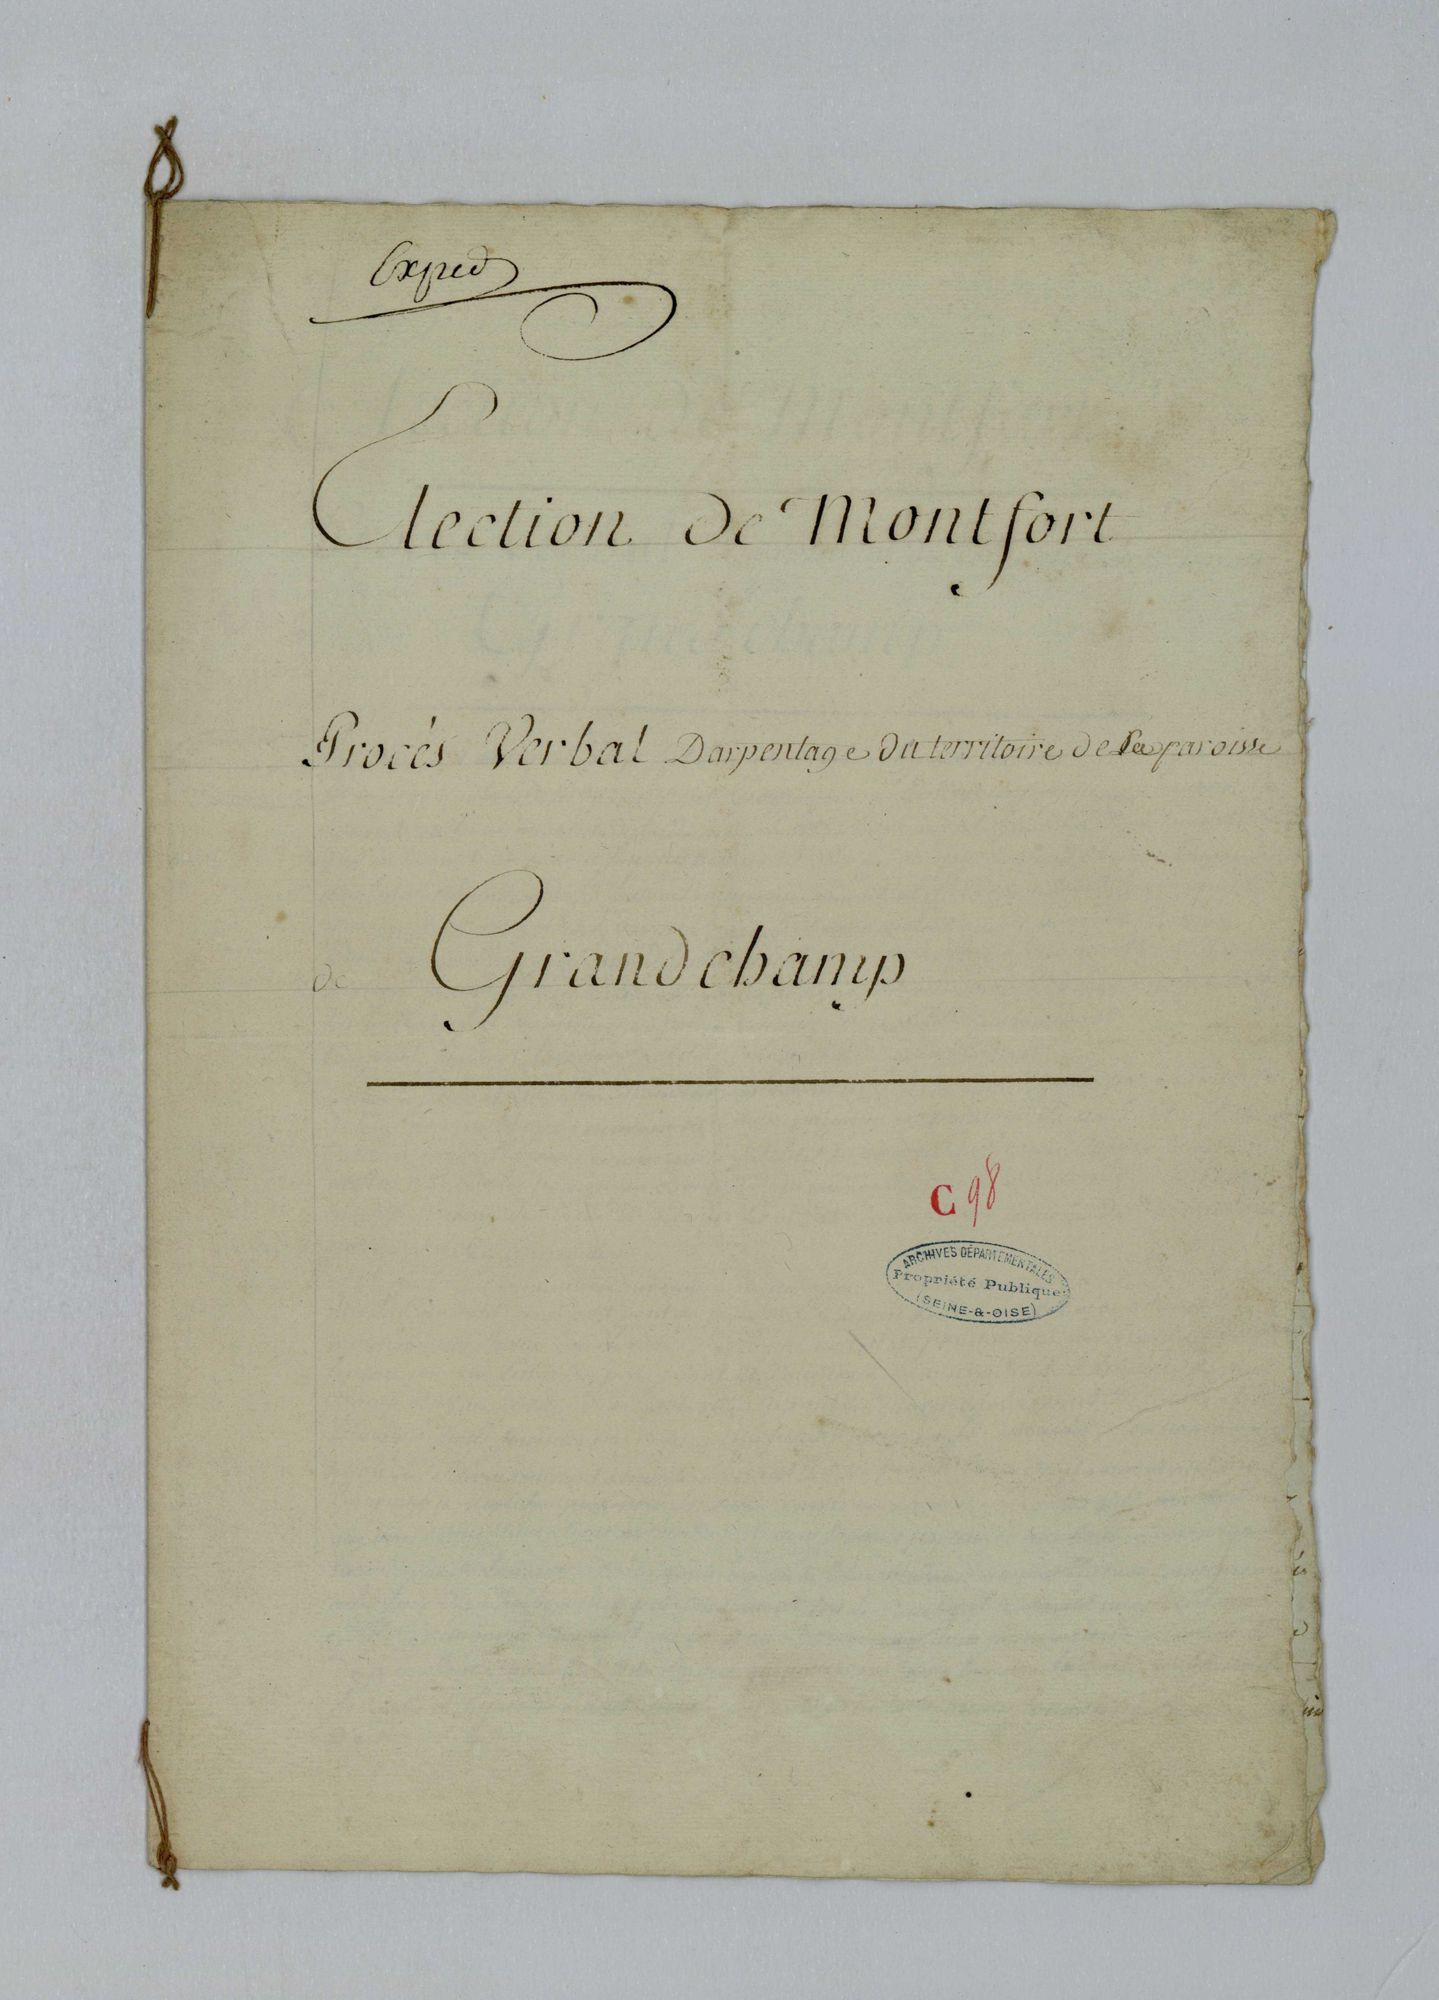 Exped
Election de Montfort
Procés Verbal Darpentage du territoire de la paroisse
de Grandchamp
C 98
ARCHIVES DÉPARTEMENTALES
Propriété Publique
(SEINE-&-OISE)